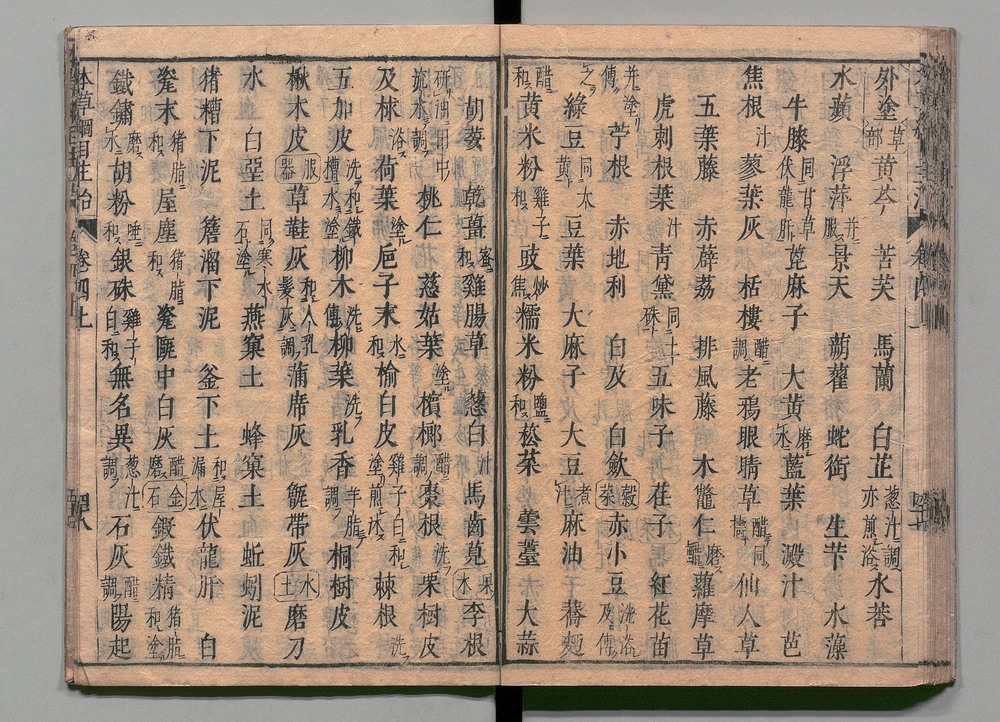 外塗 草部 黄芩 苦芙 馬蘭 白芷 葱汁調亦煎浴 水荅
水蘋 浮萍 并服 景天 蒴藋 蛇銜 生苄 水藻
牛膝 同甘草伏龍肝 蓖麻子 大黄 磨水 藍葉 澱汁 芭
焦根 汁 蓼葉灰 栝樓 醋調 老鴉眼睛草 醋同擣 仙人草
五葉藤 赤薜荔 排風藤 木鼈仁 磨 蘿摩草
虎刺根葉 汁 青黛 同土硃 五味子 荏子 紅花苗
并塗傅之 苧根 赤地利 白及 白歛 穀菜 赤小豆 洗浴及傅
緑豆 同大黄 豆葉 大麻子 大豆 煮汁 麻油 蕎麪
醋和 黄米粉 雞子和 豉 炒焦 糯米粉 鹽和 菘菜 蕓薹 大蒜
胡荽 乾薑 蜜和 雞腸草 葱白 汁 馬齒莧 果木 李根
研油田中流水調 桃仁 慈姑葉 塗 檳榔 醋調 棗根 洗 栗樹皮
及材 浴 荷葉 塗 巵子末 水和 榆白皮 雞子白和塗煎沐 棘根 洗
五加皮 洗和鐵槽水塗 柳木 洗傅 柳葉 洗 乳香 羊脂調 桐樹皮
楸木皮 服器 草鞋灰 和人乳髮灰調 蒲席灰 甑帶灰 水土 磨刀
水 白堊土 同寒水石塗 燕窠土 蜂窠土 蚯蚓泥
猪槽下泥 簷溜下泥 釜下土 和屋漏水 伏龍肝 白
甃末 猪脂和 屋塵 猪脂和 甃甌中白灰 醋磨 金石 鍛鐵精 猪脂和塗
鐵鏽 磨水 胡粉 唾和 銀硃 雞子白和 無名異 葱汁調 石灰 醋調 陽起
本草綱目主治 卷四上 四八